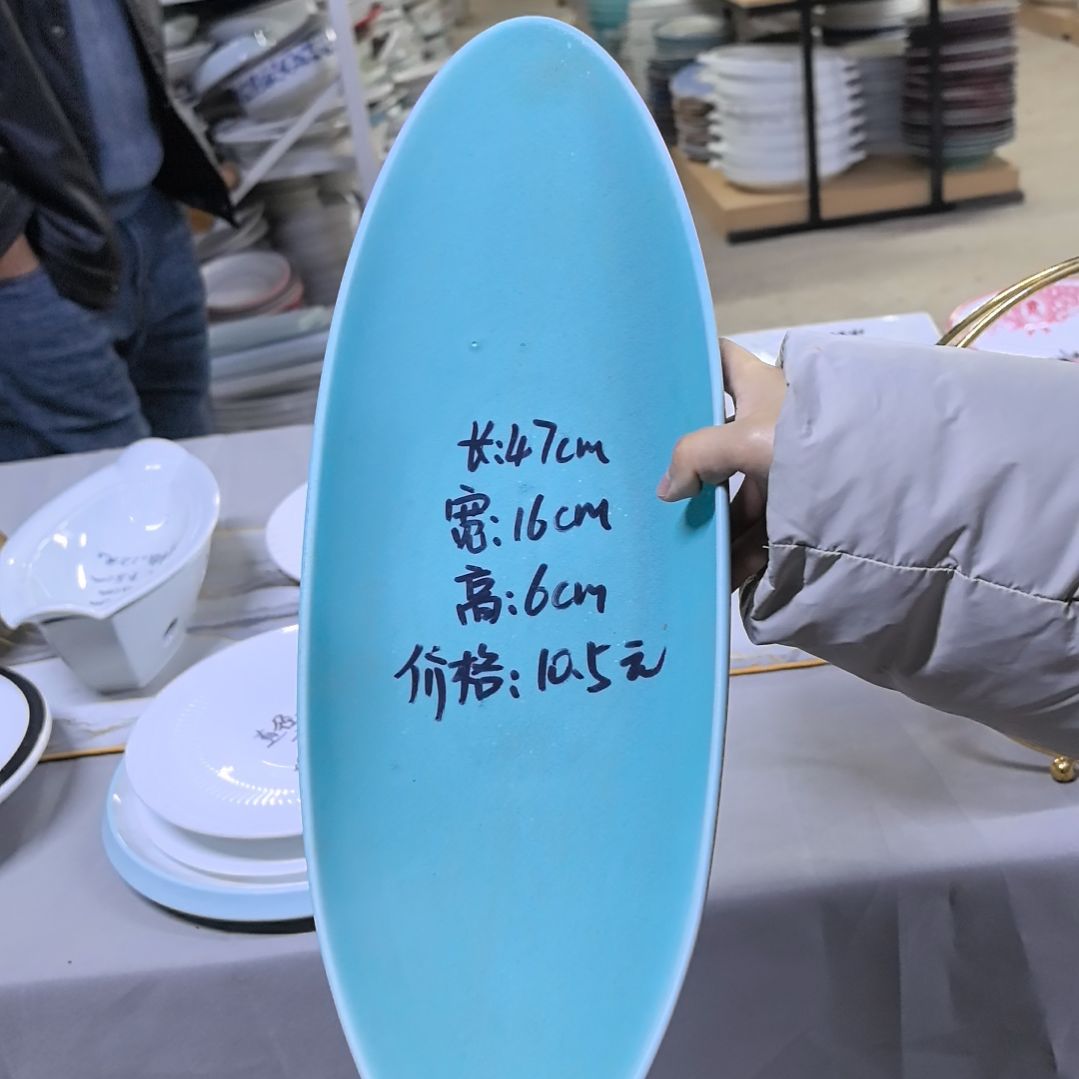 长:47cm
宽:16cm
高:6cm
价格:10.5元